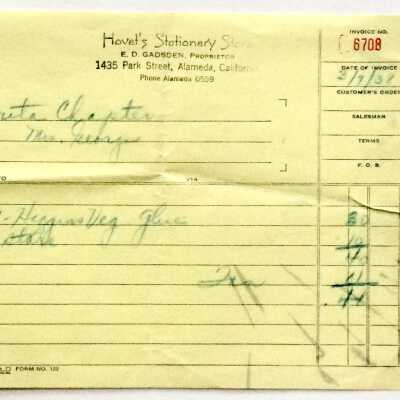 Hovet's Stationery Store
E. D. GADSDEN, PROPRIETOR
1435 Park Street, Alameda, California
Phone Alameda 0559
INVOICE NO.
6708
DATE OF INVOICE
CUSTOMER'S ORDER
SALESMAN
TERMS
F. O. B.
Chapter
Mrs. George
TO
VIA
Higgins Veg Glue 30
Tax
44
FORM NO. 122